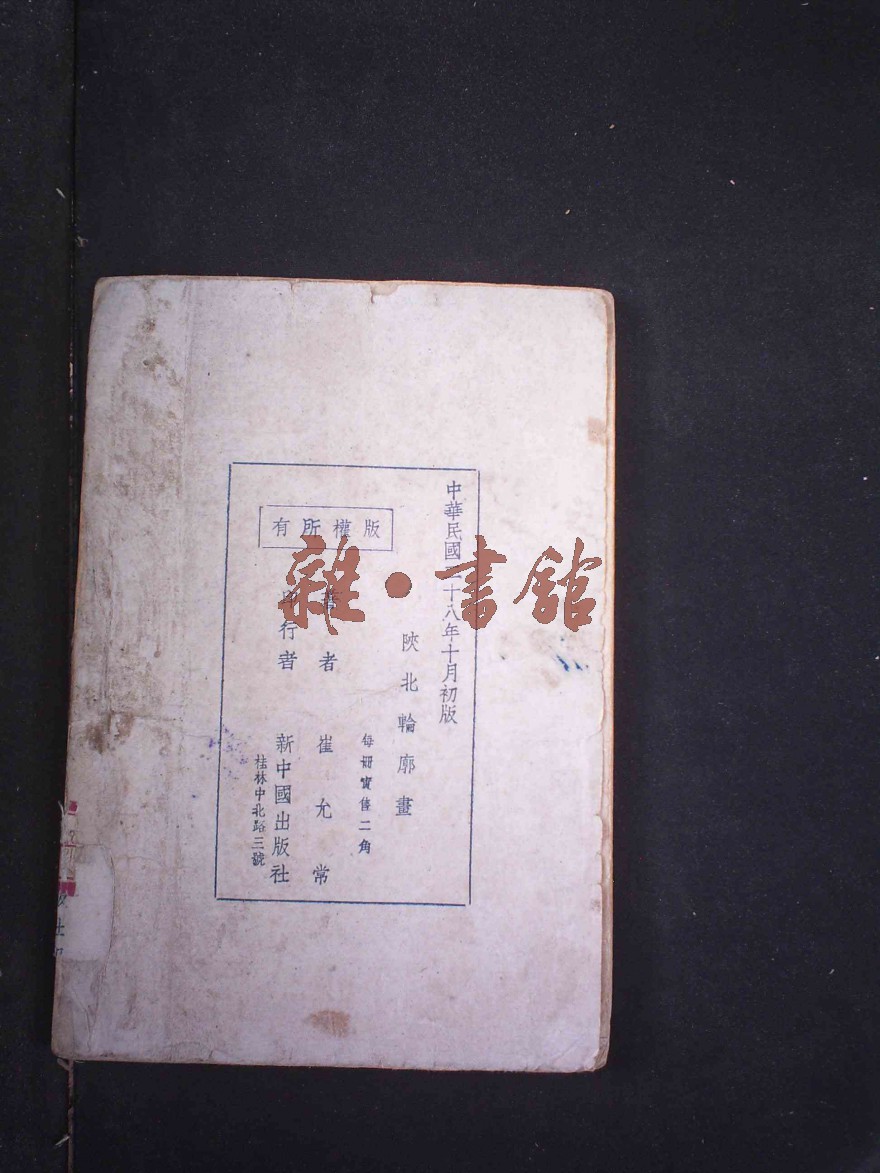 中華民國二十八年十月初版
陝北輪廓畫
每冊實售二角
版權所有
著者 崔允常
印行者 新中國出版社
桂林中北路三號
雜·書館